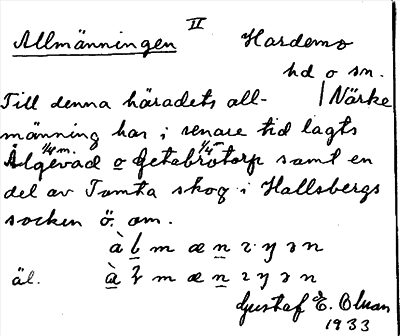 Allmänningen II Hardemo
hd o sn.
Till denna häradets all- | Närke
männing har i senare tid lagts
Älgevad 1/4 m. o Getabrotorp 1/4 samt en
del av Tomta skog i Hallsbergs
socken ö. om.
àlmænɩyɘn
äl. àɫmænɩyɘn
Gustaf E. Olsson
1933